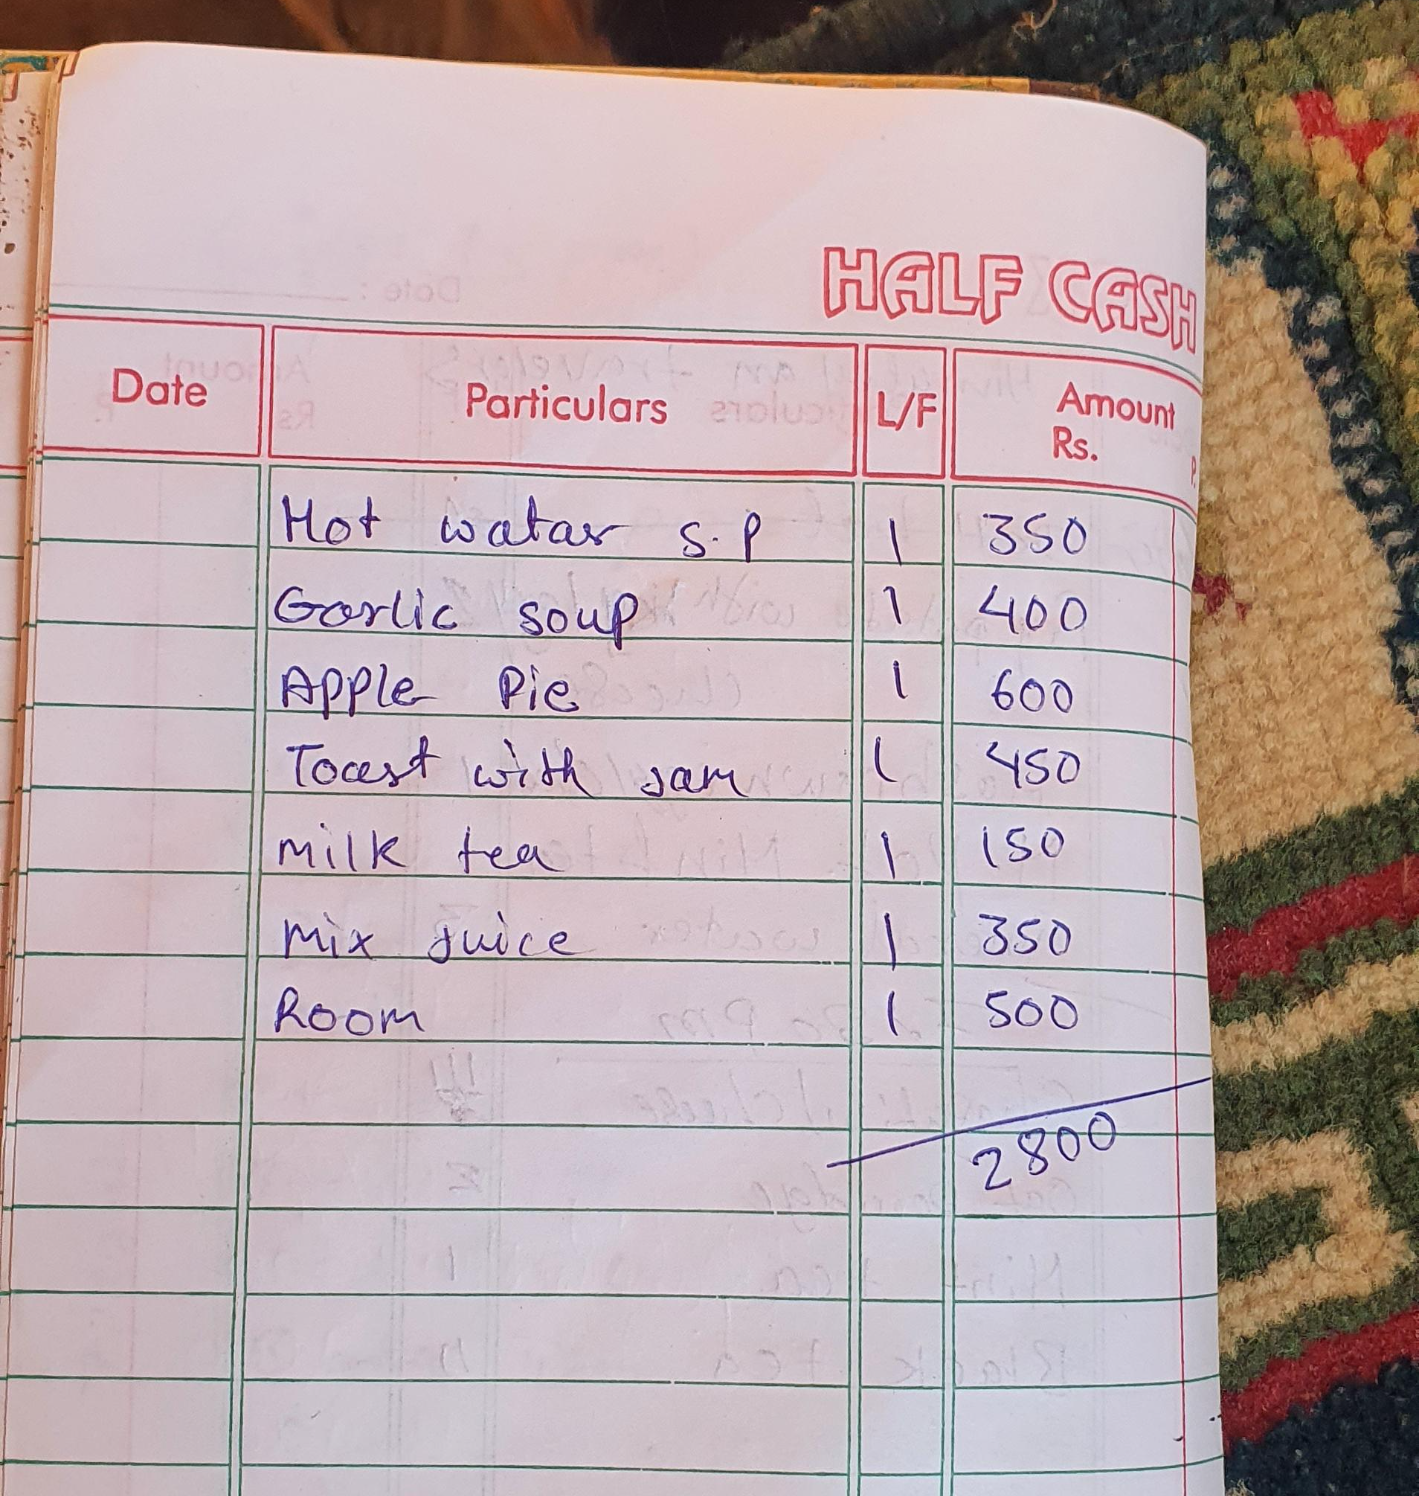 HALF CASH
Date Particulars L/F Amount
Rs. P.
Hot watar S.P 1 350
Garlic soup 1 400
Apple Pie 1 600
Toast with Jam 1 450
Milk tea 1 150
Mix Juice 1 350
Room 1 500
2800